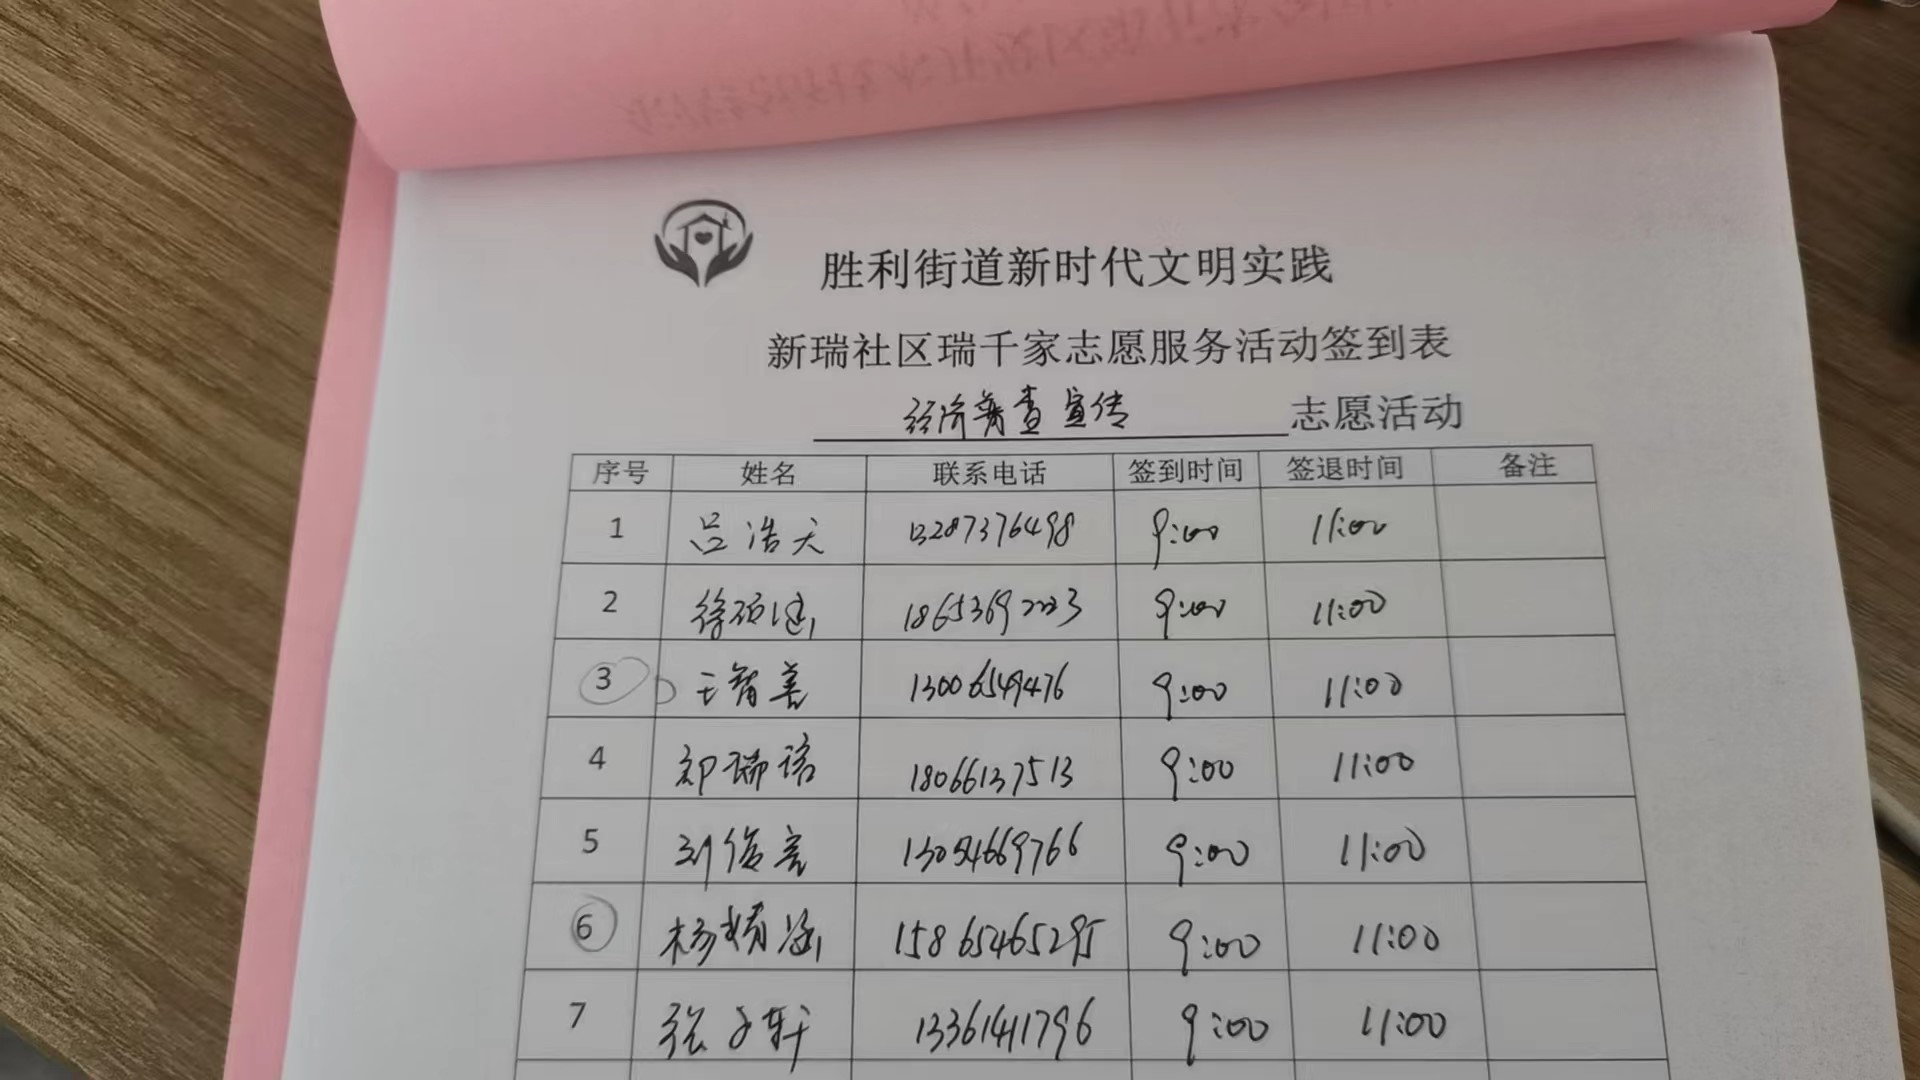 胜利街道新时代文明实践
新瑞社区瑞千家志愿服务活动签到表
经济普查宣传 志愿活动
序号 姓名 联系电话 签到时间 签退时间 备注
1 吕浩天 13287376498 9:00 11:00
2 徐硕涵 18653692223 9:00 11:00
3 王智善 13006549476 9:00 11:00
4 郑瑞诺 18066137513 9:00 11:00
5 刘俊言 13054669766 9:00 11:00
6 杨婧涵 15865465295 9:00 11:00
7 张子轩 13361411796 9:00 11:00